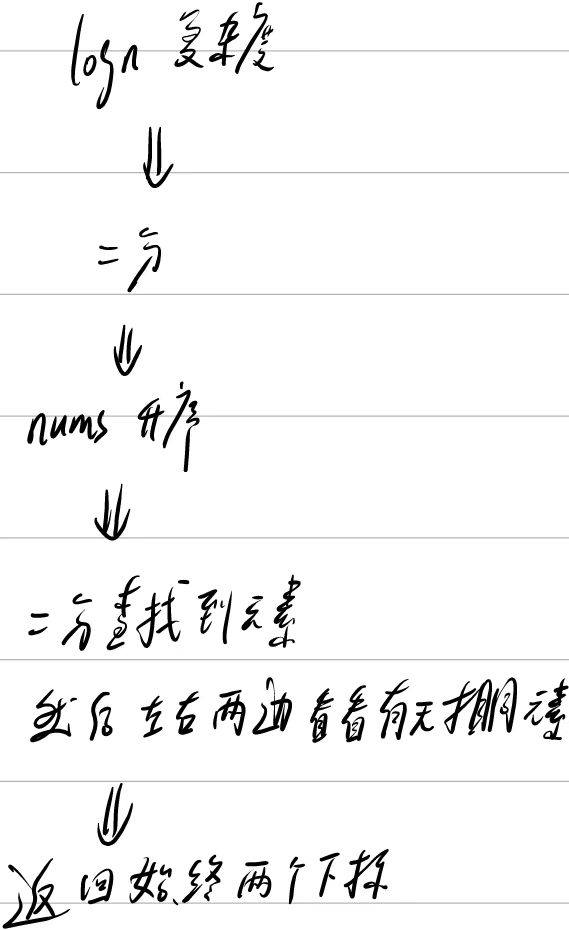 logn 复杂度
⇓
二分
⇓
nums 升序
⇓
二分查找到元素
然后左右两边看看有无相同元素
⇓
返回始终两个下标